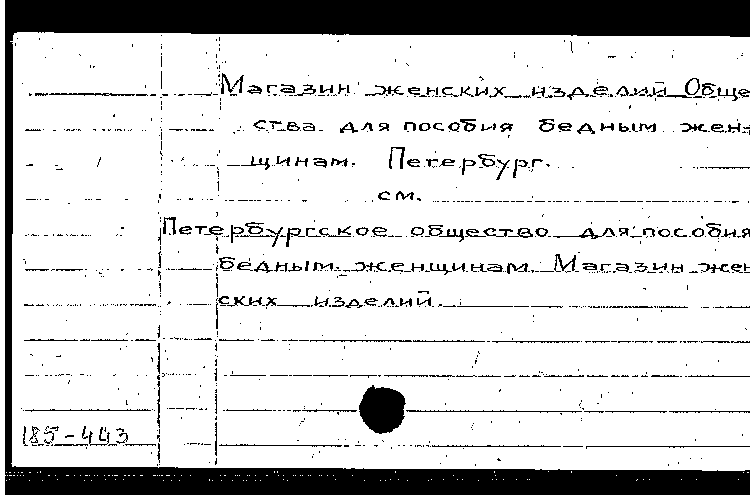 Магазин женских изделий Обще
ства для пособия бедным жен-
щинам. Петербург.
см.
Петербургское общество для пособия
бедным женщинам. Магазин жен
ских изделий.
185-443